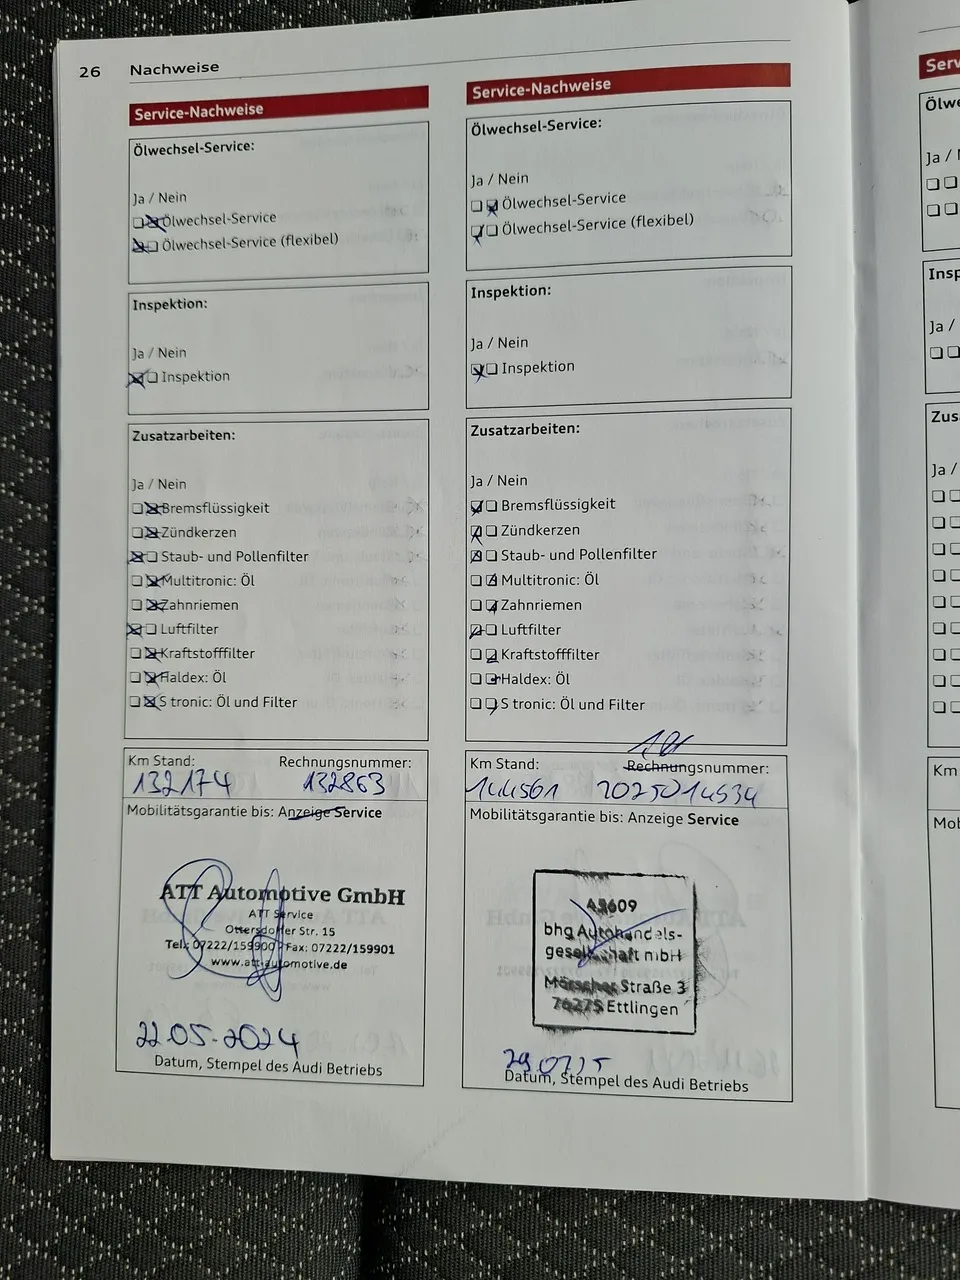 26 Nachweise
Service-Nachweise
Ölwechsel-Service:
Ja / Nein
Ölwechsel-Service
Ölwechsel-Service (flexibel)
Inspektion:
Ja / Nein
Inspektion
Zusatzarbeiten:
Ja / Nein
Bremsflüssigkeit
Zündkerzen
Staub- und Pollenfilter
Multitronic: Öl
Zahnriemen
Luftfilter
Kraftstofffilter
Haldex: Öl
S tronic: Öl und Filter
Km Stand: Rechnungsnummer:
132174 132863
Mobilitätsgarantie bis: Anzeige Service
ATT Automotive GmbH
ATT Service
Ottersdorfer Str. 15
Tel.: 07222/159900 · Fax: 07222/159901
www.att-automotive.de
22.05.2024
Datum, Stempel des Audi Betriebs
Service-Nachweise
Ölwechsel-Service:
Ja / Nein
Ölwechsel-Service
Ölwechsel-Service (flexibel)
Inspektion:
Ja / Nein
Inspektion
Zusatzarbeiten:
Ja / Nein
Bremsflüssigkeit
Zündkerzen
Staub- und Pollenfilter
Multitronic: Öl
Zahnriemen
Luftfilter
Kraftstofffilter
Haldex: Öl
S tronic: Öl und Filter
Km Stand: Rechnungsnummer:
144561 2025014534
Mobilitätsgarantie bis: Anzeige Service
bhg Autohandels-
gesellschaft mbH
Mörscher Straße 3
76275 Ettlingen
Datum, Stempel des Audi Betriebs
Serv
Ölwe
Ja /
Insp
Ja /
Zus
Ja /
Km
Mob